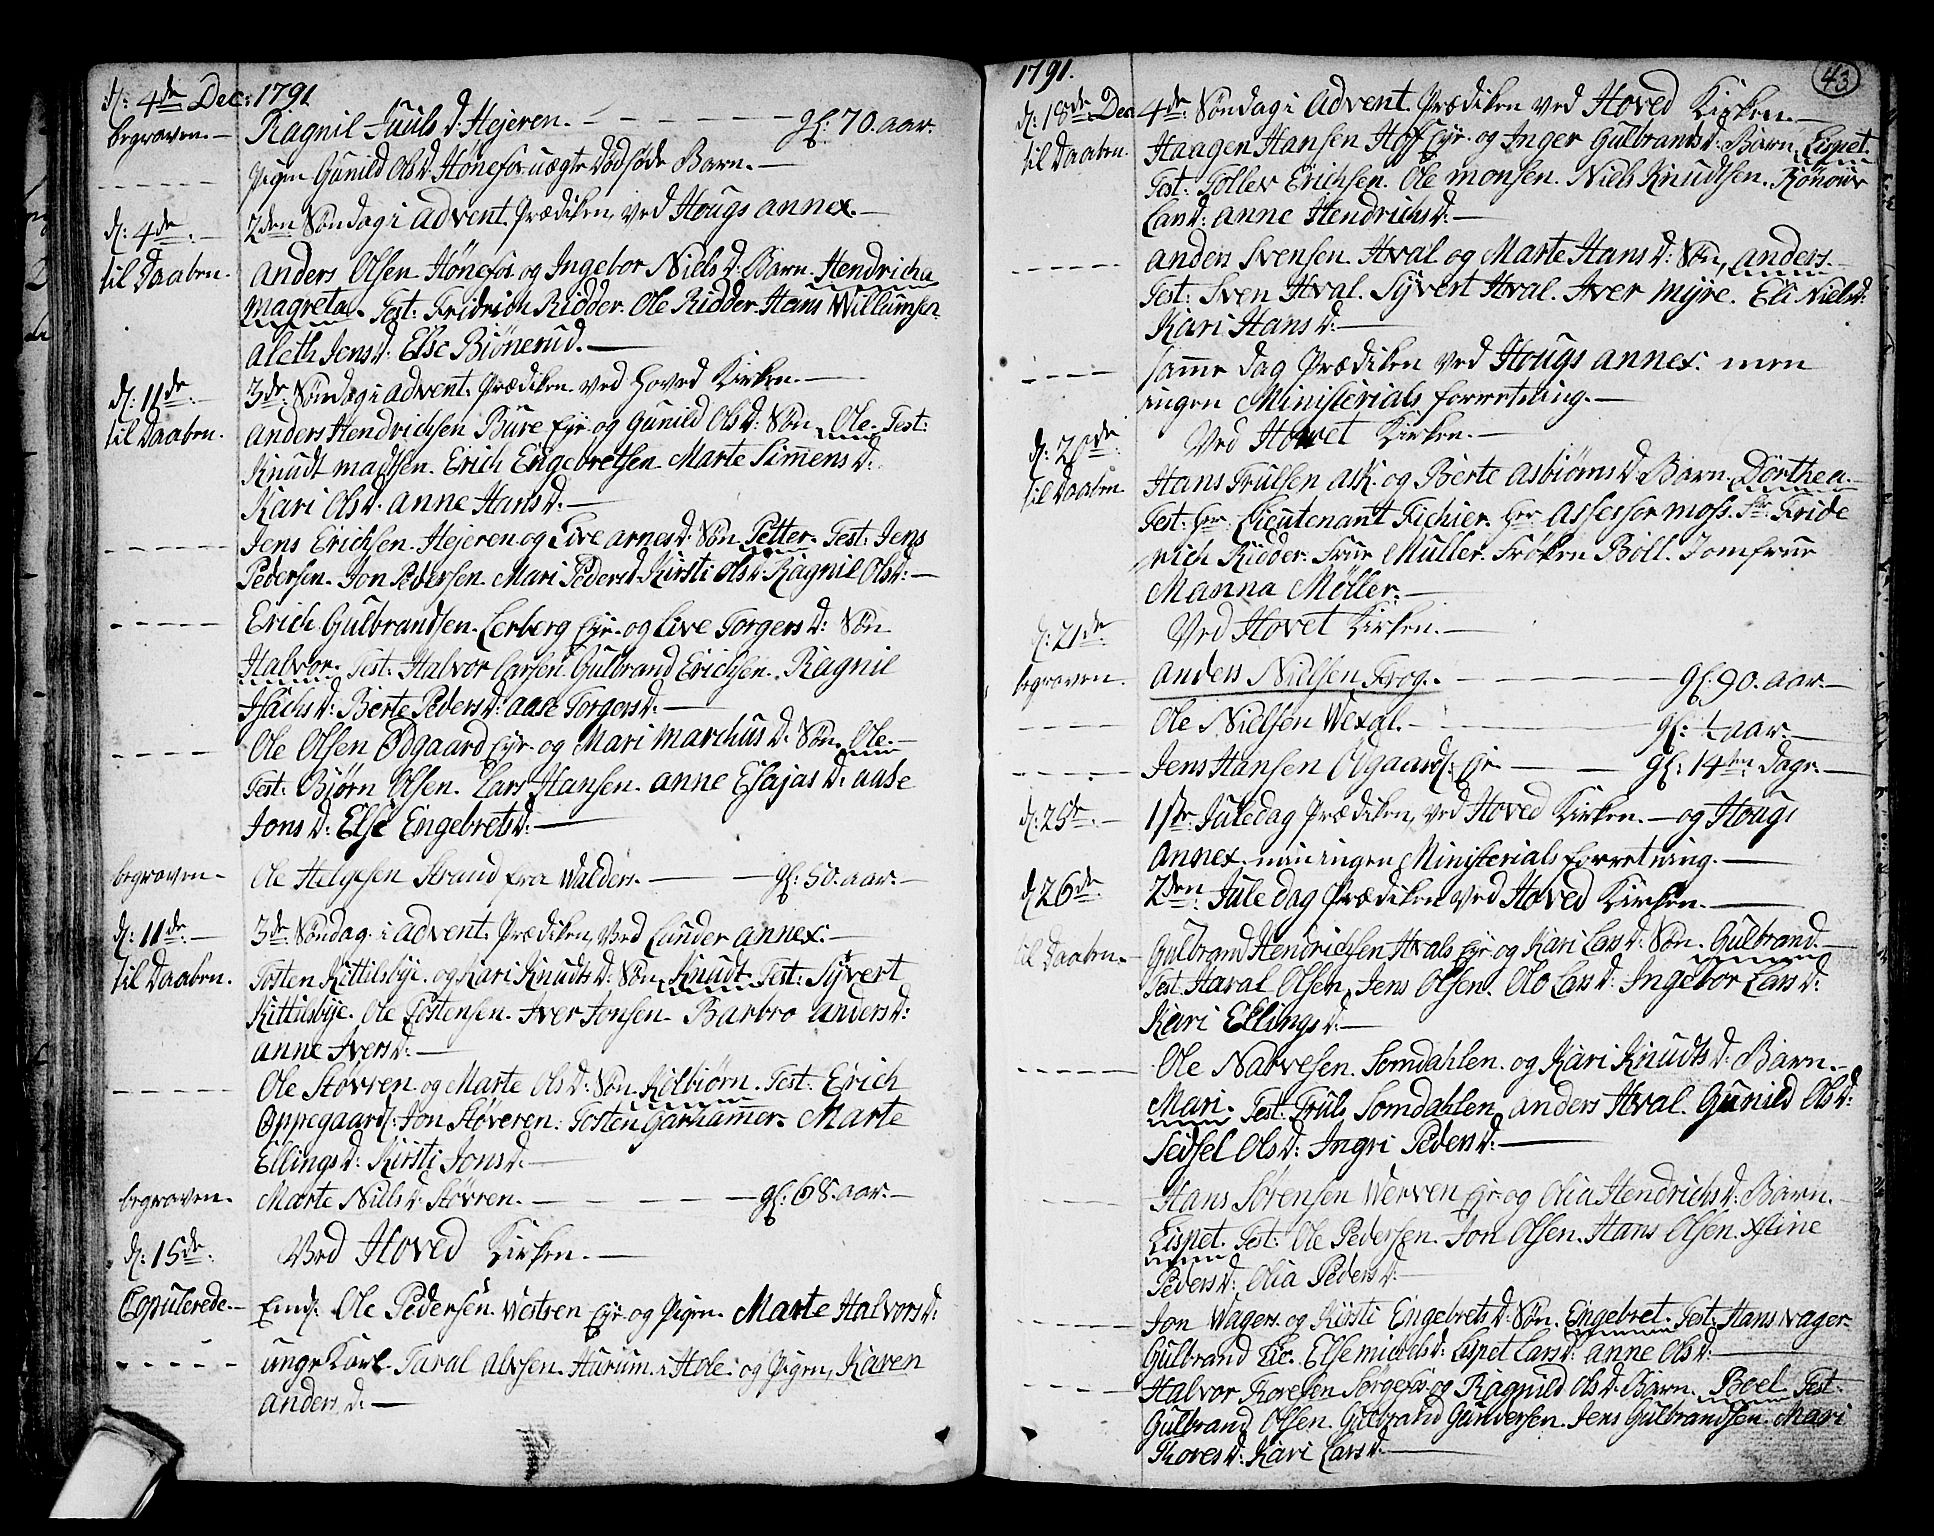 d: 4de Dec: 1791
begraven. — Ragnil Juuls d: Hejeren. — gl: 70. aar.
Pigen Gunild Ols d: Hönefos uægte dödföde Barn. —
d: 4de — 2den Söndag i Advent. Prædiken ved Hougs annex. —
til Daaben. Anders Olsen Hönefos. og Ingebor Niels d: Barn. Hendricha
Magreta. Test: Fridrich Ridder. Ole Ridder. Hans Willumsen
Aleth Jens d: Else Biönerud. —
d: 11de — 3de Söndag i Advent. Prædiken ved Hoved Kirken. —
til Daaben. Anders Hendrichsen Bure Eyr og Gunild Ols d: Sön Ole. Test:
Knudt Madsen. Erich Engebretsen. Marte Simens d:
Kari Ols d: Anne Hans d: —
Jens Erichsen. Hejeren og Live Arnes d: Sön Petter. Test: Jens
Pedersen. Jon Pedersen. Mari Peders d: Kirsti Ols d: Ragnil Ols d: —
Erich Gulbrandsen. Lerberg Eyr og Live Torgers d: Sön
Halvor. Test: Halvor Larsen. Gulbrand Erichsen. Ragnil
Isachs d: Berte Peders d: Aase Torgers d: —
Ole Olsen Odgaard Eyr. og Mari Marchus d: Sön. Ole. —
Test: Björn Olsen. Lars Hansen. Anne Esajas d: Aase
Jons d: Else Engebrets d: —
begraven — Ole Helgesen Strand fra Walders. — gl: 50. aar. —
d: 11de — 3de Söndag i Advent. Prædiken, ved Lunder annex. —
til Daaben. Tosten Kittilsbye. og Kari Knudts d: Sön Knudt. Test: Syvert
Kittilsbye. Ole Tostensen. Iver Jonsen. Barbro Anders d:
Anne Ivers d: —
Ole Stövren. og Marte Ols d: Sön. Kolbiörn. Test: Erich
Oppegaard. Jon Stöveren. Tosten Garhammer. Marte
Ellings d: Kirsti Jons d: —
begraven. Marte Niels d: Stövren. — gl: 68. aar. —
d: 15de Ved Hoved Kirken. —
Copulerede. — Ole Pedersen. Westren Eyr og Pigen. Marte Halvors d:
unge Karl. Taral Alvsen. Hurum. i Hole. og Pigen, Karen
Anders d: —
1791. 43
d: 18de Dec 4de Söndag i Advent. Prædiken ved Hoved Kirken. —
til Daaben. Haagen Hansen Hof Eyr og Inger Gulbrands d: Barn. Lispet.
Test: Tollev Erichsen. Ole Monsen. Niels Knudtsen. Rönour
Lars d: Anne Hendrichs d: —
Anders Svensen. Hval og Marte Hans d: Sön, Anders.
Test: Sven Hval. Syvert Hval. Iver Myre. Eli Niels d:
Kari Hans d: —
Samme Dag Prædiken ved Hougs annex. men
ingen Ministerials forretning. —
d: 20de Ved Hovet Kirken. —
til Daaben Hans Trulsen Ask. og Berte Asbiörns d: Barn. Dorthea. —
Test: Hr: Lieutenant Fichier. Hr: Assessor Moss. Sr: Fride
rich Ridder. Frue Muller. Fröken Boll. Jomfrue
Manna Möller. —
d: 21de Ved Hovet Kirken. —
begraven. Anders Nielsen Frog. — gl: 90. aar. —
Ole Nielsen Wexal. — gl: ½ aar. —
Jens Hansen Odgaard. Eje — gl: 14ten Dage. —
d: 25de — 1ste Juledag Prædiken, ved Hoved Kirken. — og Hougs
Annex. men ingen Ministerials forretning. —
d 26de 2den Juledag Prædiken ved Hoved Kirken. —
til Daaben. — Gulbrand Hendrichsen Hvals Eyr og Kari Lars d: Sön. Gulbrand. —
Test. Haral Olsen, Jens Olsen. Olo Lars d: Ingebor Lars d:
Kari Ellings d: —
Ole Narvesen. Somdahlen. og Kari Knudts d: Barn. —
Mari. Test: Truls Somdahlen, Anders Hval. Gunild Ols d:
Sedsel Ols d: Ingri Peders d: —
Hans Sörensen Werven Eyr og Olia Hendrichs d: Barn. —
Lispet. Test: Ole Pedersen. Jon Olsen. Hans Olsen. Xstine
Peders d: Olia Peders d: —
Jon Wager. og Kirsti Engebrets d: Sön. Engebret. Test: Hans Wager
Gulbrand Lie. Else Michels d: Lispet Lars d: Anne Ols d: —
Halvor Thoresen Sorgefos og Ragnild Ols d: Barn. Boel Test:
Gulbrand Olsen. Gulbrand Gundersen. Jens Gulbrandsen. Mari
Thores d: Kari Lars d: —